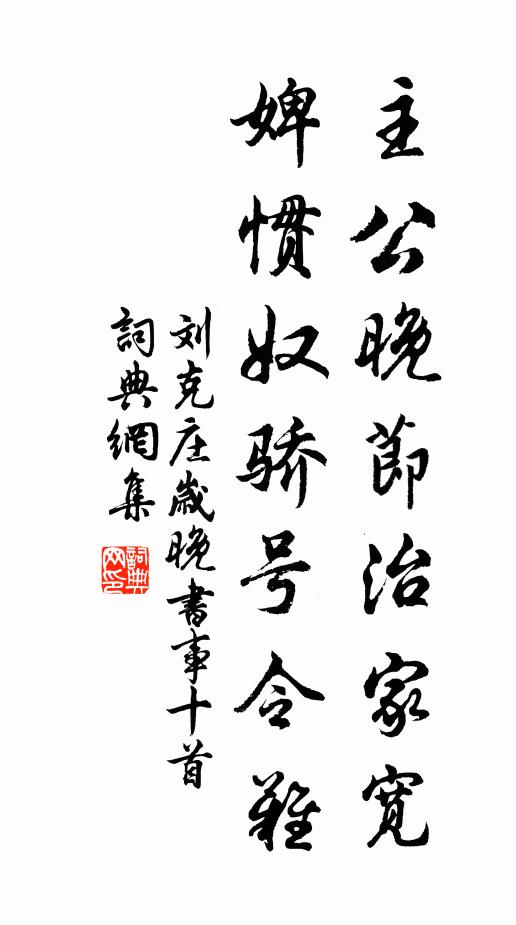 主公晚節治家寬
婢慣奴骄号令難
刘克庄歲晚書事十首
詞典網集
詞典网印